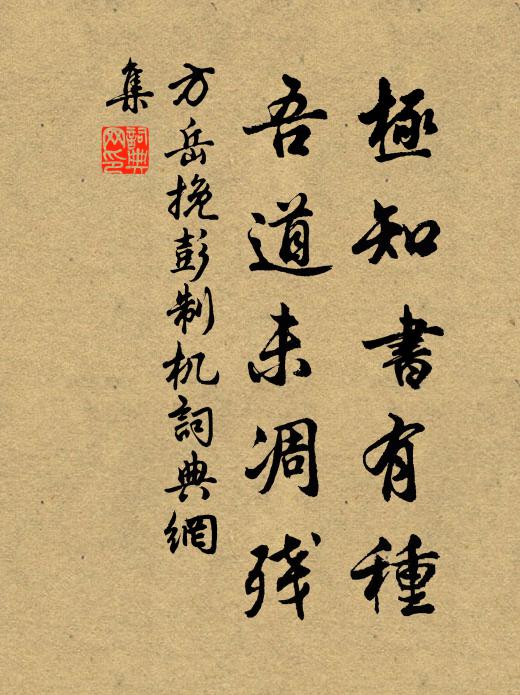 極知書有種
吾道未凋残
方岳挽彭制机詞典網
集
詞典
网印